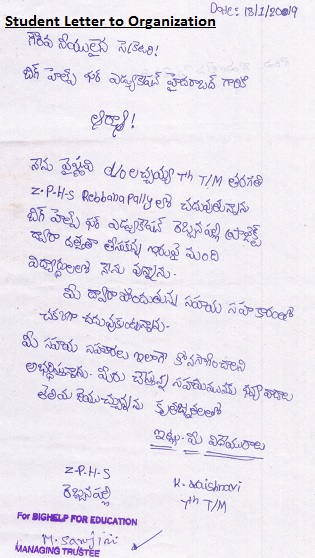 Date: 18/1/2009
Student Letter to Organization
గౌరవ నీయులైన సెక్రెటరి!
బిగ్ హెల్ప్ ఫర్ ఎడ్యుకేషన్ హైదరాబాద్ గారికి
ఆర్యా!
నేను వైష్ణవి d/o లచ్చయ్య 7th T/M తరగతి
Z.P.H.S Robbanapally లో చదువుతున్నాను
బిగ్ హెల్ప్ ఫర్ ఎడ్యుకేషన్ రెబ్బనపల్లి ప్రాజెక్ట్
ద్వారా దత్తత తీసుకున్న ఇరువై మంది
విద్యార్థులలో నేను వున్నాను.
మీ ద్వారా పొందుతున్న సహాయ సహకారంతో
చక్కగా చదువుకుంటున్నాను.
మీ సహాయ సహకారాలు ఇలాగే కొనసాగించాలని
అభ్యర్థిస్తున్నాను. మీరు చేస్తున్న
తెలియ చేయుచున్నాను కృతజ్ఞతలతో
ఇట్లు మీ విధేయురాలు
Z.P.H.S
రెబ్బనపల్లి
K. Vaishnavi
7th T/M
For BIGHELP FOR EDUCATION
M. Sarojini
MANAGING TRUSTEE